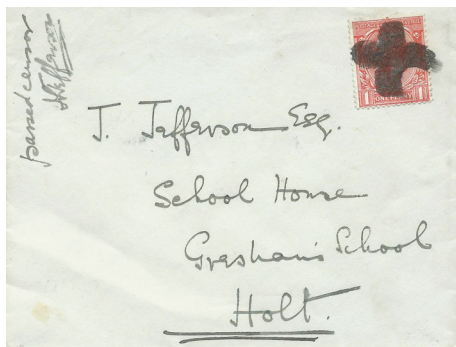 passed censor
J. Jefferson Esq.
School House
Gresham's School
Holt.
1 ONE PENNY 1